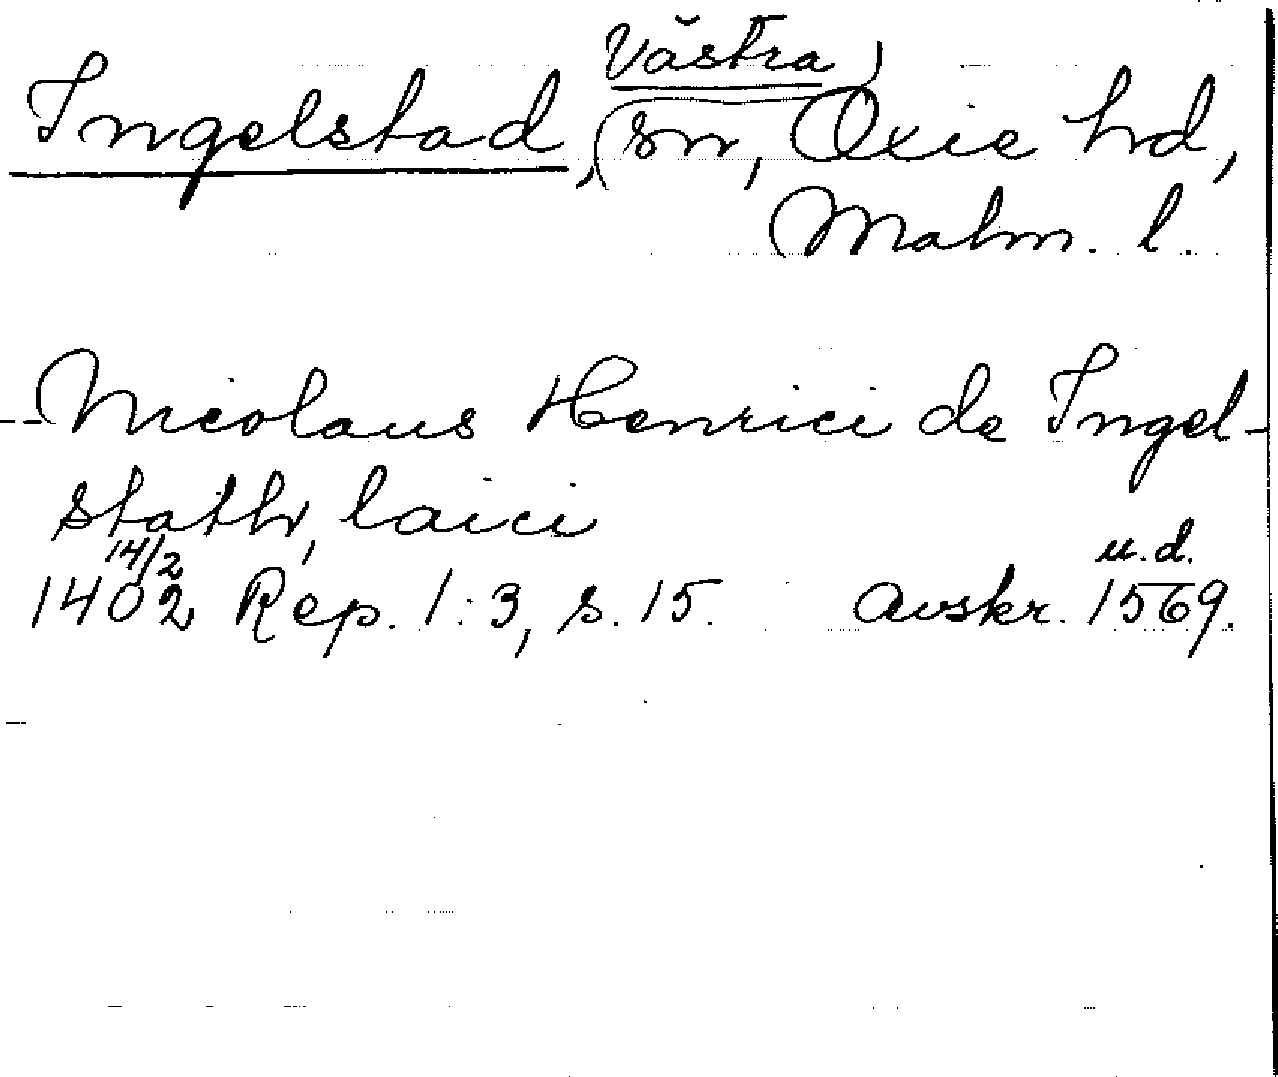 Västra
Ingelstad, sn, Oxie hd,
Malm. l.
Nicolaus Henrici de Ingel-
stath, laici
14/2 u.d.
1402 Rep. 1:3, s. 15. Avskr. 1569.